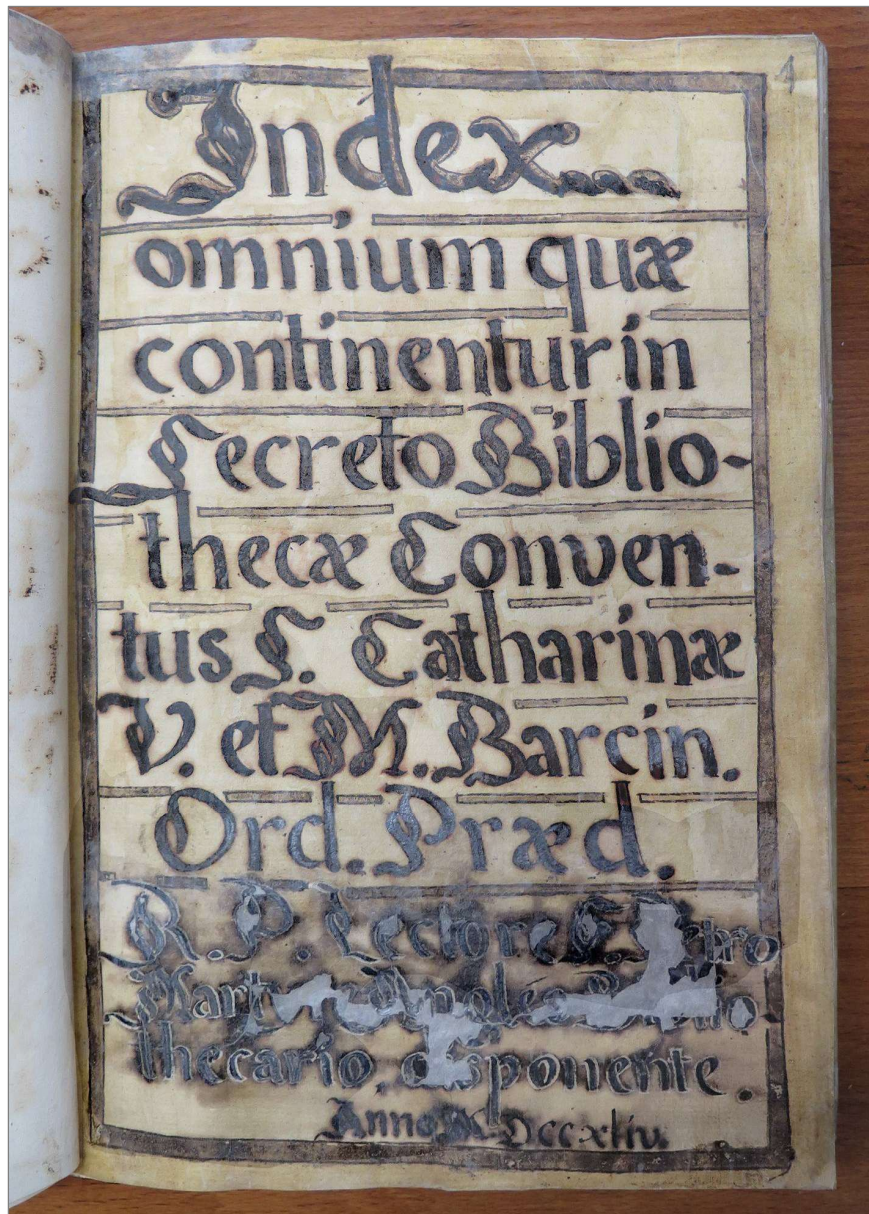 1
Index
omnium quæ
continentur in
Secreto Biblio-
thecæ Conven-
tus S. Catharinæ
V. et M. Barcin.
Ord. Præd.
R. P. Lectore F.
thecario, disponente.
Anno M. Dccxliv.